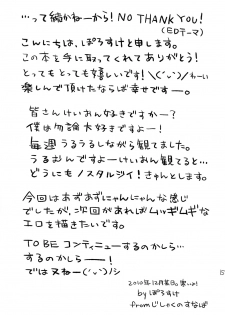 …って続かねーから! NO THANK YOU!
(EDテーマ)
こんにちは、ぽろすけと申します。
この本を手に取ってくれてありがとう!
とってもとっても嬉しいです! \('ヮ')/わーい
楽しんで頂けたならば幸せです―。
皆さんけいおん好きですかー?
僕は勿論大好きですよー!
毎週うるうるしながら観てました。
うるむんですよーけいおん観てると…
どうにもノスタルジイ!きゃんとします。
今回はあずあずにゃんにゃんな感じ
でしたが、次回があればムッギムギな
エロを描きたいです。
TO BE コンティニューするのかしら…
するのかしらー!
ではヌねー('ヮ')ノシ
2010年12月某日。寒いよ!
by ぽろすけ
from じしゃくのすなば